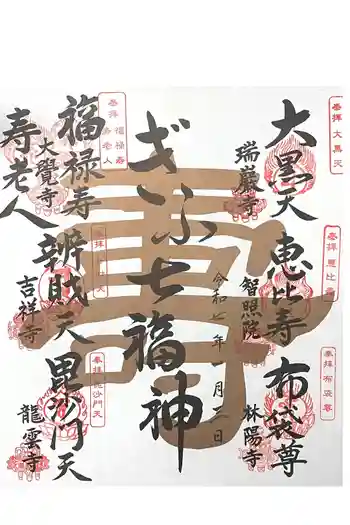 奉拝 大黒天
大黒天
瑞巌寺
奉拝 恵比寿
恵比寿
智照院
奉拝 布袋尊
布袋尊
林陽寺
ぎふ七福神
令和七年一月三日
寿
奉拝 福禄寿
寿老人
福禄寿
大覺寺
寿老人
辨財天
吉祥寺
奉拝 毘沙門天
毘沙門天
龍雲寺